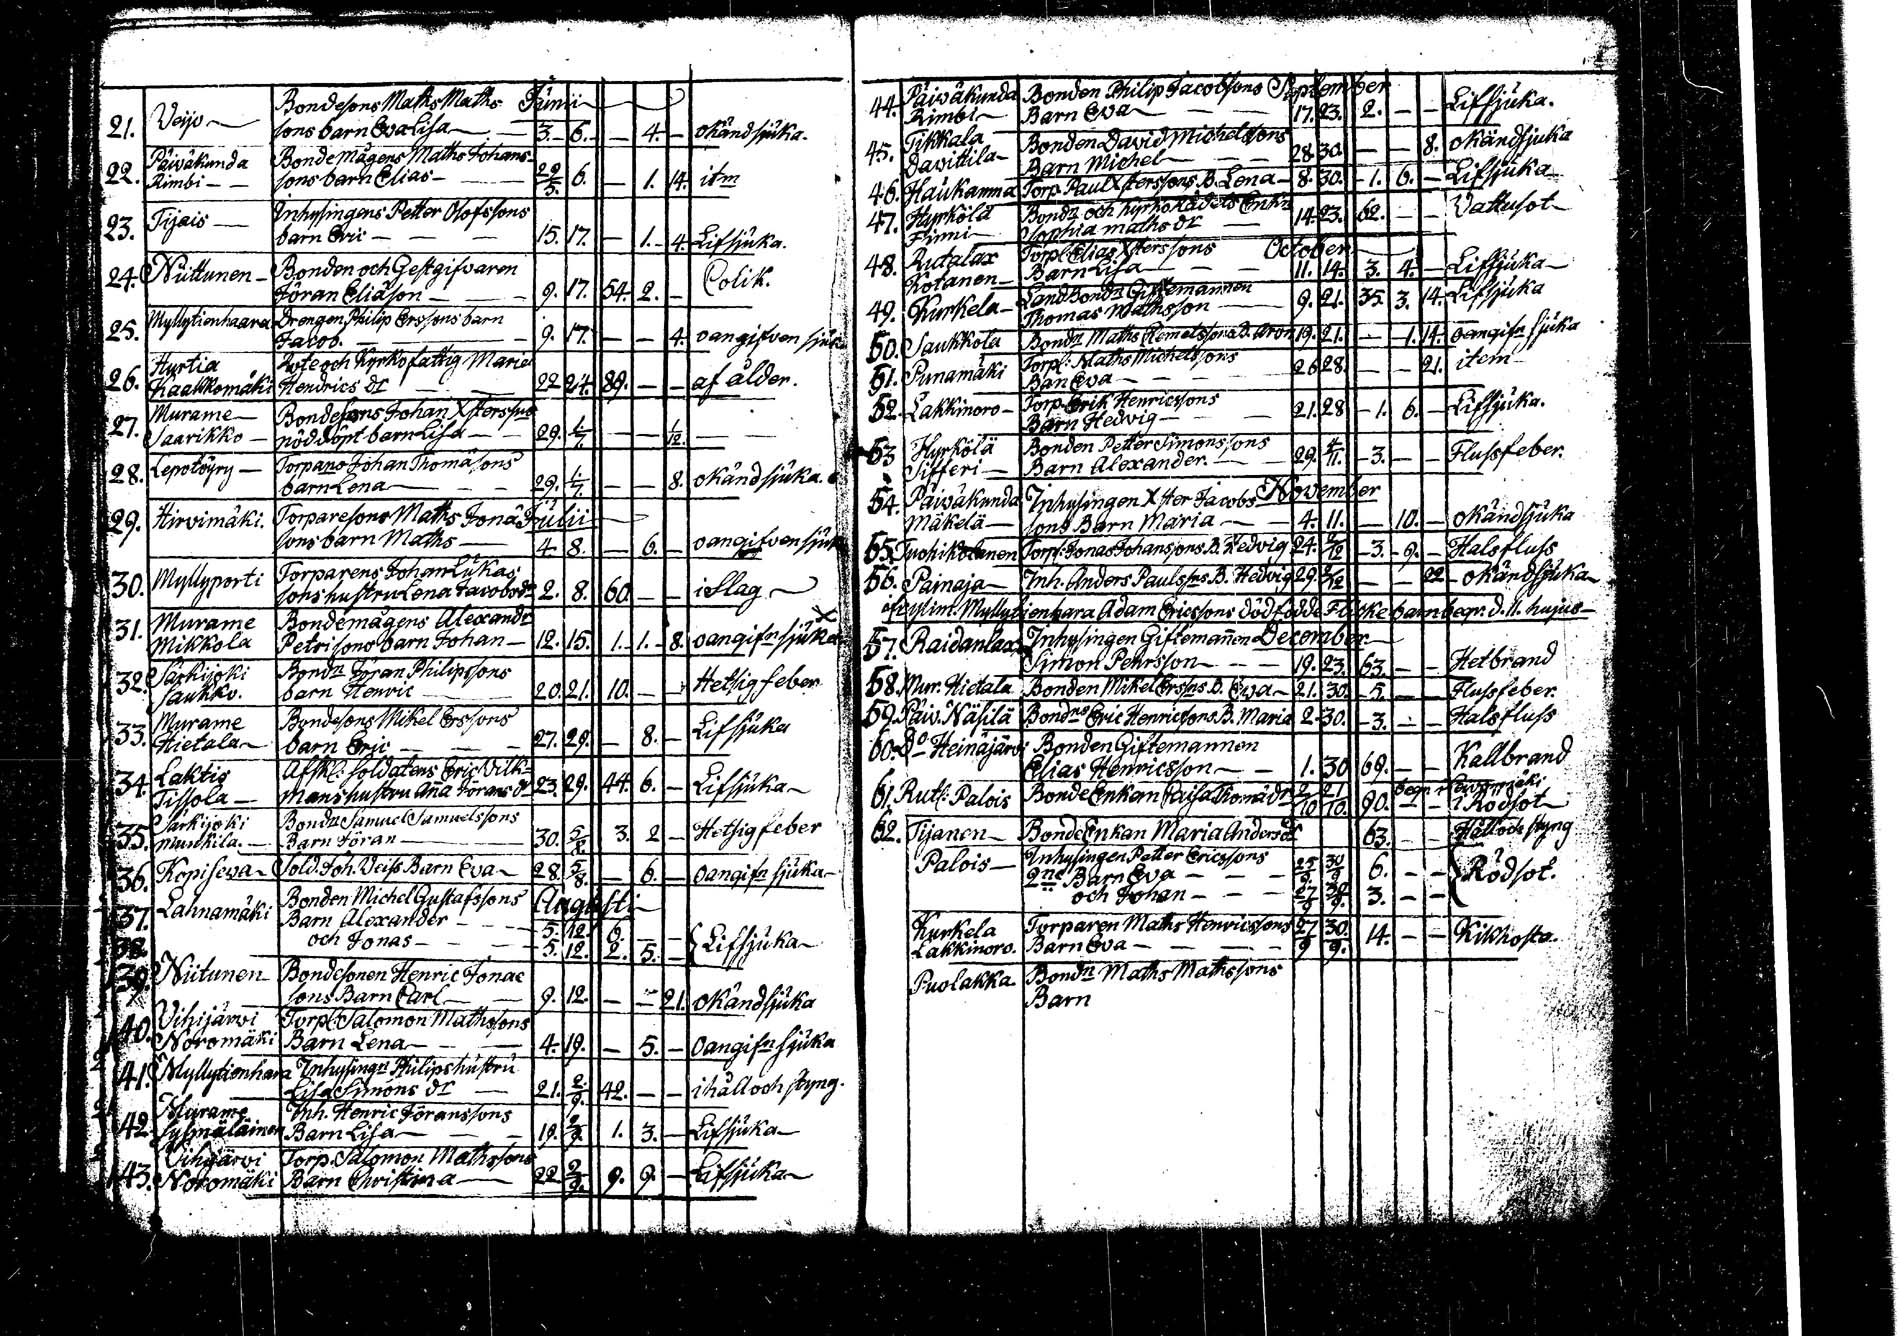 Bondesons Maths Maths Junii
21. Veijo sons barn Eva Lisa 3. 6. — 4. — okänd sjuka.
22. Päiväkunda Bondemågens Maths Johans-
Rimbi sons barn Elias 29/5 6. — 1. 14. itm
23. Tijais Inhysingens Petter Olofssons
barn Eric 15. 17. — 1. 4. Lifsjuka.
24. Niittunen Bonden och Gestgifvaren
Jöran Eliäson 9. 17. 54. 2. — Colik.
25. Myllytienhaara Drengen Philip Erssons barn
Jacob. 9. 17. — — 4. oangifven sjuk
26. Hyrtia Rote och Kyrkofattig Maria
Kaakkomäki Hendrics dr 22 24. 89. — — af ålder.
27. Murame Bondesons Johan Xsterssons
Saarikko nöddöpt barn Lisa 29. 1/7. — — 1/12.
28. Lepotöyry Torpans Johan Thomäsons
barn Lena 29. 1/7. — — 8. okänd sjuka.
29. Hirvimäki. Torparesons Maths Jonä Julii
sons barn Maths 4. 8. — 6. — oangifven sjuk
30. Myllyporti Torparens Johan Lukas
sons hustru Lena Jacobsdr 2. 8. 60. — — i slag
31. Murame Bondemågens Alexandr
Mikkola Petrisons barn Johan 12. 15. 1. 1. 8. oangifn sjuka
32. Särkijoki Bondn Jöran Philipssons
Saukko. barn Henric 20. 21. 10. — — Hetsig feber
33. Murame Bondesons Mikel Erssons
Hietala barn Eric 27. 29. — 8. — Lifsjuka
34. Laktis Afsk: soldatens Eric Vilk-
Tissola mans hustru Ana Jörans dr 23. 29. 44. 6. — Lifsjuka
35. Särkijoki Bondn Samuel Samuelssons
Munkila. Barn Jöran 30. 5/8 3. 2 — Hetsig feber
36. Kopiseva Sold. Joh. Veiss Barn Eva 28. 5/8. — 6. — Oangifn sjuka
37. Lahnamäki Bonden Michel Gustafssons Augusti
Barn Alexander 5. 12. 6. — —
38. och Jonas 5. 12. 2. 5. — Lifsjuka
39. Niitunen Bondesonen Henric Jonae
sons Barn Carl 9. 12. — — 21. okänd sjuka
40. Vihijärvi Torp: Salomon Mathssons
Noromäki Barn Lena 4. 19. — 5. — Oangifn sjuka
41. Myllytienhara Inhysingn Philips hustru
Lisa Simons dr 21. 2/9. 42. — — i håll och styng.
42. Murame Inh. Henric Jöranssons
Sysmäläinen Barn Lisa 19. 2/9. 1. 3. — Lifsjuka
43. Vihijärvi Torp. Salomon Mathssons
Noromäki Barn Christina 22. 2/9. 9. 9. — Lifsjuka
44. Päiväkunda Bonden Philip Jacobsons September
Rimbi Barn Eva 17. 23. 2. — — Lifsjuka.
45. Tikkala Bonden David Michelssons
Davittila Barn Michel 28. 30. — — 8. okändsjuka
46. Haukanma Torp. Paul Xsterssons B. Lena 8. 30. 1. 6. — Lifsjuka
47. Hyrkölä Bondn och Kyrkovädets Enkn
Finni Sophia Maths dr 14. 23. 62. — — Vattusot
48. Rutalax Torp: Elias Xsterssons October
Kotanen Barn Lisa 11. 14. 3. 4. — Lifsjuka
49. Kurkela Landbondn Giftemannen
Thomas Mathsson 9. 21. 35. 3. 14. Lifsjuka
50. Saukkola Bondn Maths Klemetssons B. Aron 19. 21. — 1. 14. oangifn sjuka
51. Punamäki Torp: Maths Michelssons
Ban Eva 26 28. — — 21. item
52. Lakkinoro Torp. Erik Henricssons
Barn Hedvig 21. 28 1. 6. — Lifsjuka.
53 Hyrkölä Bonden Petter Simonssons
Sifferi Barn Alexander. 29. 4/11. 3. — — Flussfeber.
54. Päiväkunda Inhysingen Xster Jacobs November
Mäkelä sons Barn Maria 4. 11. — 10. — okändsjuka
55. Tuohikotanen Torp: Jonas Johanssons B. Hedvig 24. 2/12 3. 9. — Halsfluss
56. Painaja Inh. Anders Paulssns B. Hedvig 29. 2/12 — — 22 okändsjuka
Myllytienhara Adam Ericssons dödfödde Flickebarn begr. d. 11. hujus
57. Raidanlax Inhysingen Giftemannen December
Simon Pehrsson 19. 23. 63. — — Hetbrand
58. Mur. Hietala Bonden Mikel Erssns B. Eva 21. 30. 5. — — Flussfeber.
59. Päiv. Näsilä Bondns Eric Henricssons B. Maria 2. 30. 3. — — Halsfluss
60. Do Heinäjärvi Bonden Giftemannen
Elias Henricsson 1. 30 69. — — Kallbrand
61. Ruts: Palois BondeEnkan Caisa Thomädr 2/10 21/10. 90. — — i Rödsot
62. Tijanen BondeEnkan Maria Anders dr 63. — — Håll och styng
Palois Inhysingen Petter Ericssons
2ne Barn Eva 25/9 30/9 6. — — Rödsot.
och Johan 27/9 30/9. 3. — —
Kurkela Torparen Maths Henricssons
Lakkinoro. Barn Eva 27/9 30/9. 14. — — Kikhosta.
Puolakka Bondn Maths Mathssons
Barn